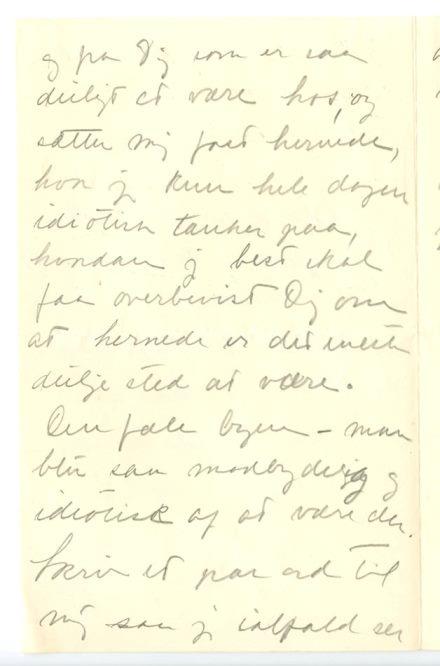 og paa Dig som er saa
deiligt at være hos, og
sætter mig fast hernede,
hvor jeg kun hele dagen
idiotisk tænker paa,
hvordan jeg best skal
faa overbevist Dig om
at hernede er det mest
deilje sted at være.
Den fæle byen – man
blir saa modbydelig og
idiotisk af at være der.
Skriv et par ord til
mig saa jeg ialfald ser